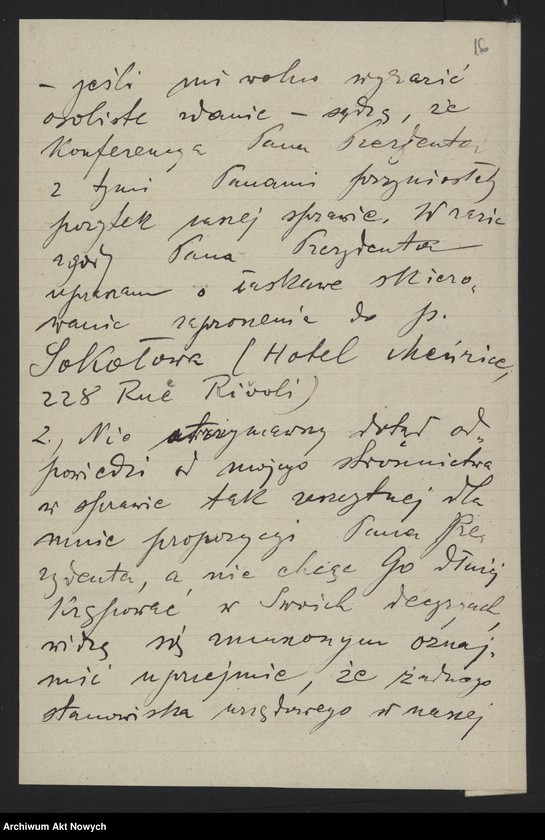 16
– jeśli mi wolno wyrazić
osobiste zdanie – sądzę, że
Konferencya Pana Prezydenta
z tymi Panami przyniosłaby
pożytek naszej sprawie. W razie
zgody Pana Prezydenta
upraszam o łaskawe skiero-
wanie zaproszenia do p.
Sokołowa (Hotel Meurice,
228 Rue Rivoli)
2., Nie otrzymawszy dotąd od-
powiedzi od mojego stronnictwa
w sprawie tak zaszczytnej dla
mnie propozycyi Pana Pre-
zydenta, a nie chcąc Go dłużej
krępować w Swoich decyzjach,
widzę się zmuszonym oznaj-
mić uprzejmie, że żadnego
stanowiska urzędowego w naszej
Archiwum Akt Nowych